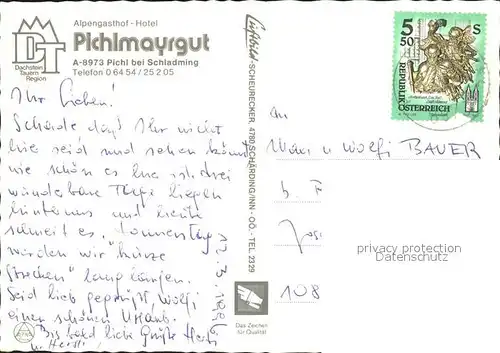 Alpengasthof - Hotel
Pichlmayrgut
A-8973 Pichl bei Schladming
Telefon 0 64 54 / 25 2 05
DT
Dachstein
Tauern
Region
Ihr Lieben!
Schade daß Ihr nicht
hie seid und sehen könnt
wie schön es hie ist. drei
wunderbare Tage liegen
hinter uns und heute
schneit es. Donnerstag
werden wir "kurze
Strecken" langlaufen.
Seid lieb gegrüßt, Wolfi
einen schönen Urlaub.
Bis bald liebe Grüße
Luftbild-SCHEURECKER, 4780-SCHÄRDING/INN - OÖ. - TEL. 2329
5 50 S
REPUBLIK
ÖSTERREICH
An
u Wolfi BAUER
108
privacy protection
Datenschutz
Das Zeichen
für Qualität